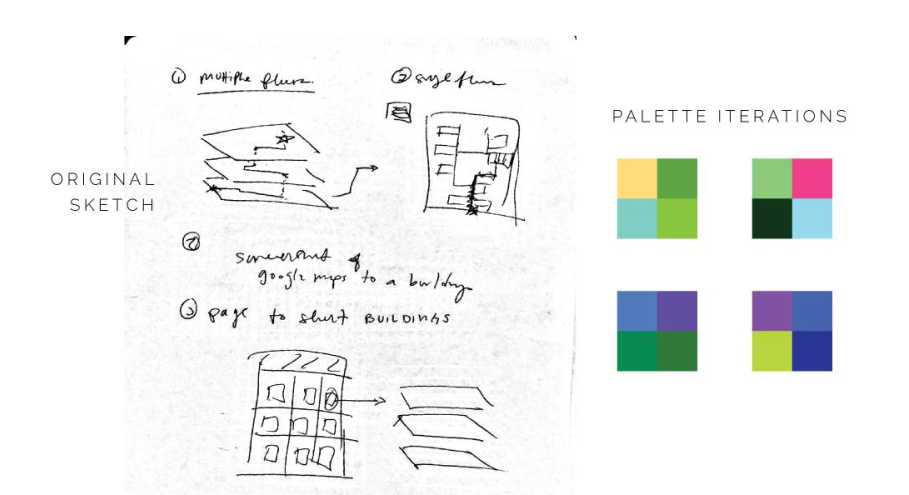 ORIGINAL
SKETCH
① multiple floors
② single floor
②
screenshot of
google maps to a building
③ page to select BUILDINGS
PALETTE ITERATIONS